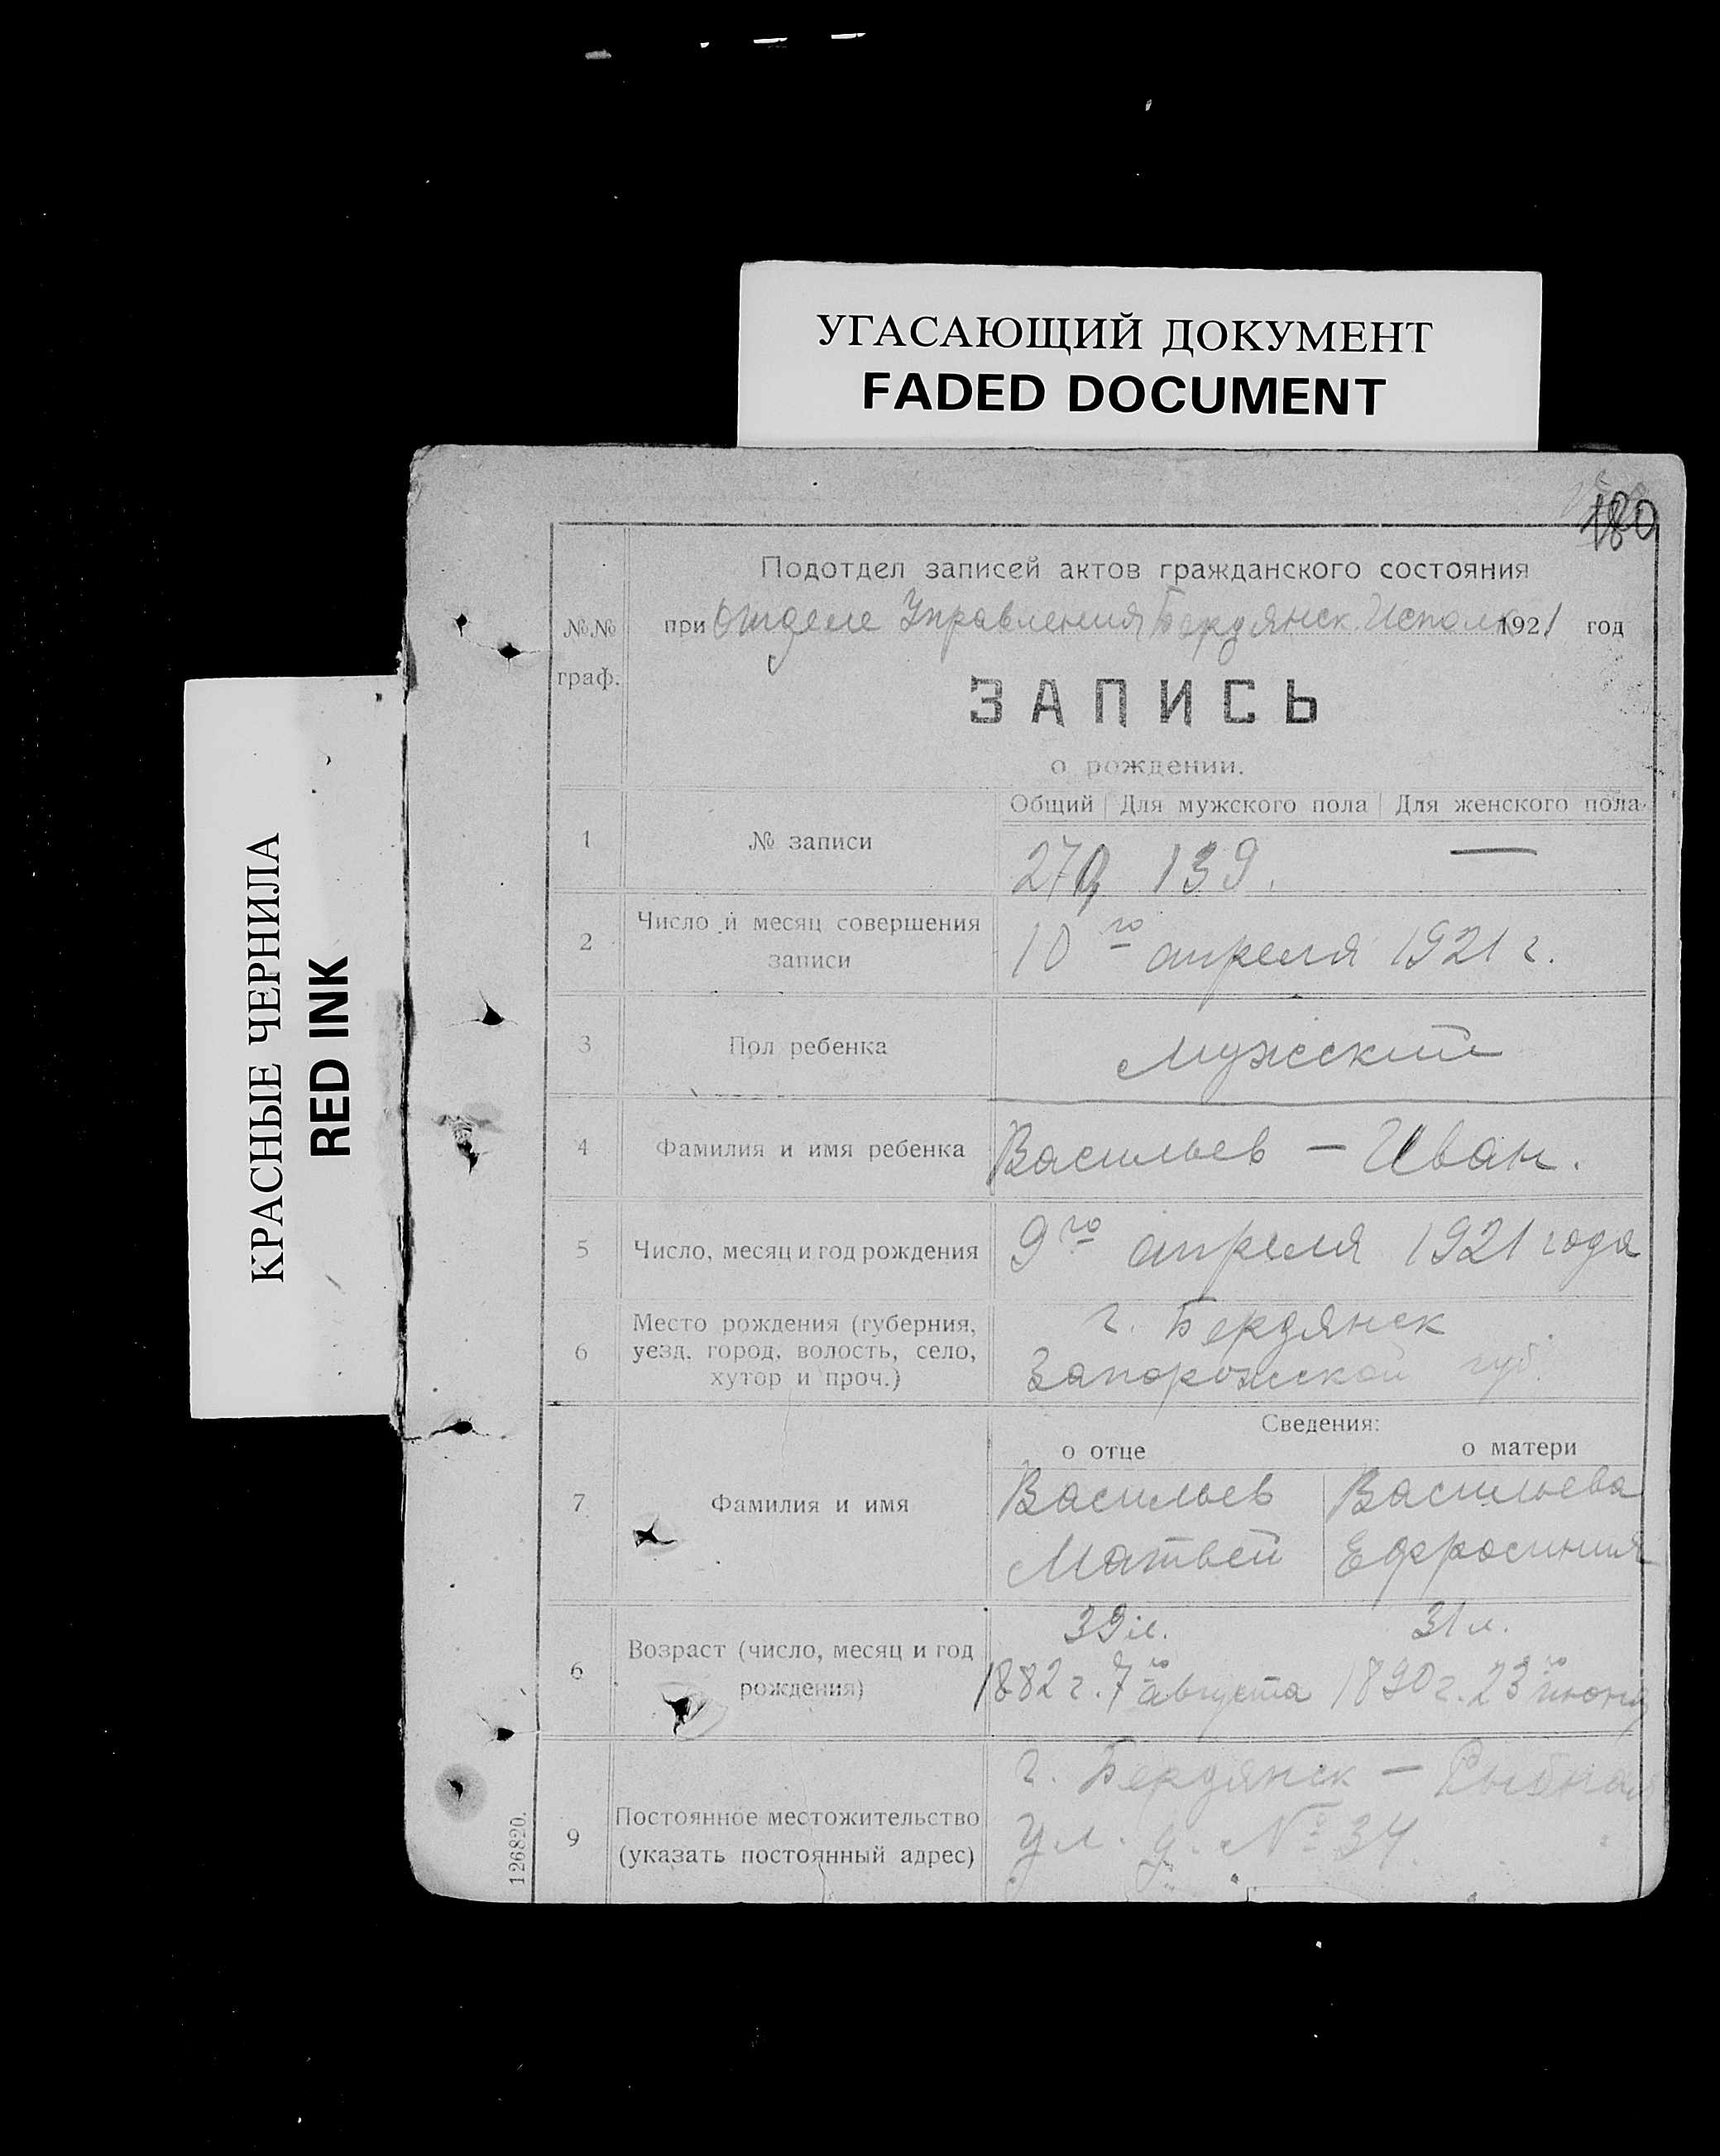 УГАСАЮЩИЙ ДОКУМЕНТ
FADED DOCUMENT
КРАСНЫЕ ЧЕРНИЛА
RED INK
180
Подотдел записей актов гражданского состояния
при Отделе Управления Бердянск. Исполк. 1921 год
№№ граф.
ЗАПИСЬ
о рождении.
Общий Для мужского пола Для женского пола
1 № записи 139. —
2 Число и месяц совершения записи 10го апреля 1921 г.
3 Пол ребенка Мужеский
4 Фамилия и имя ребенка Васильев – Иван.
5 Число, месяц и год рождения 9го апреля 1921 года
6 Место рождения (губерния, уезд, город, волость, село, хутор и проч.)
г. Бердянск
Запорожской губ.
Сведения:
о отце о матери
7 Фамилия и имя
Васильев Васильева
Матвей Ефросиния
6 Возраст (число, месяц и год рождения)
39 л. 31 л.
1882 г. 7го августа 1890 г. 23го июня
9 Постоянное местожительство (указать постоянный адрес)
г. Бердянск – Рыбная
ул. д. № 34
126820.